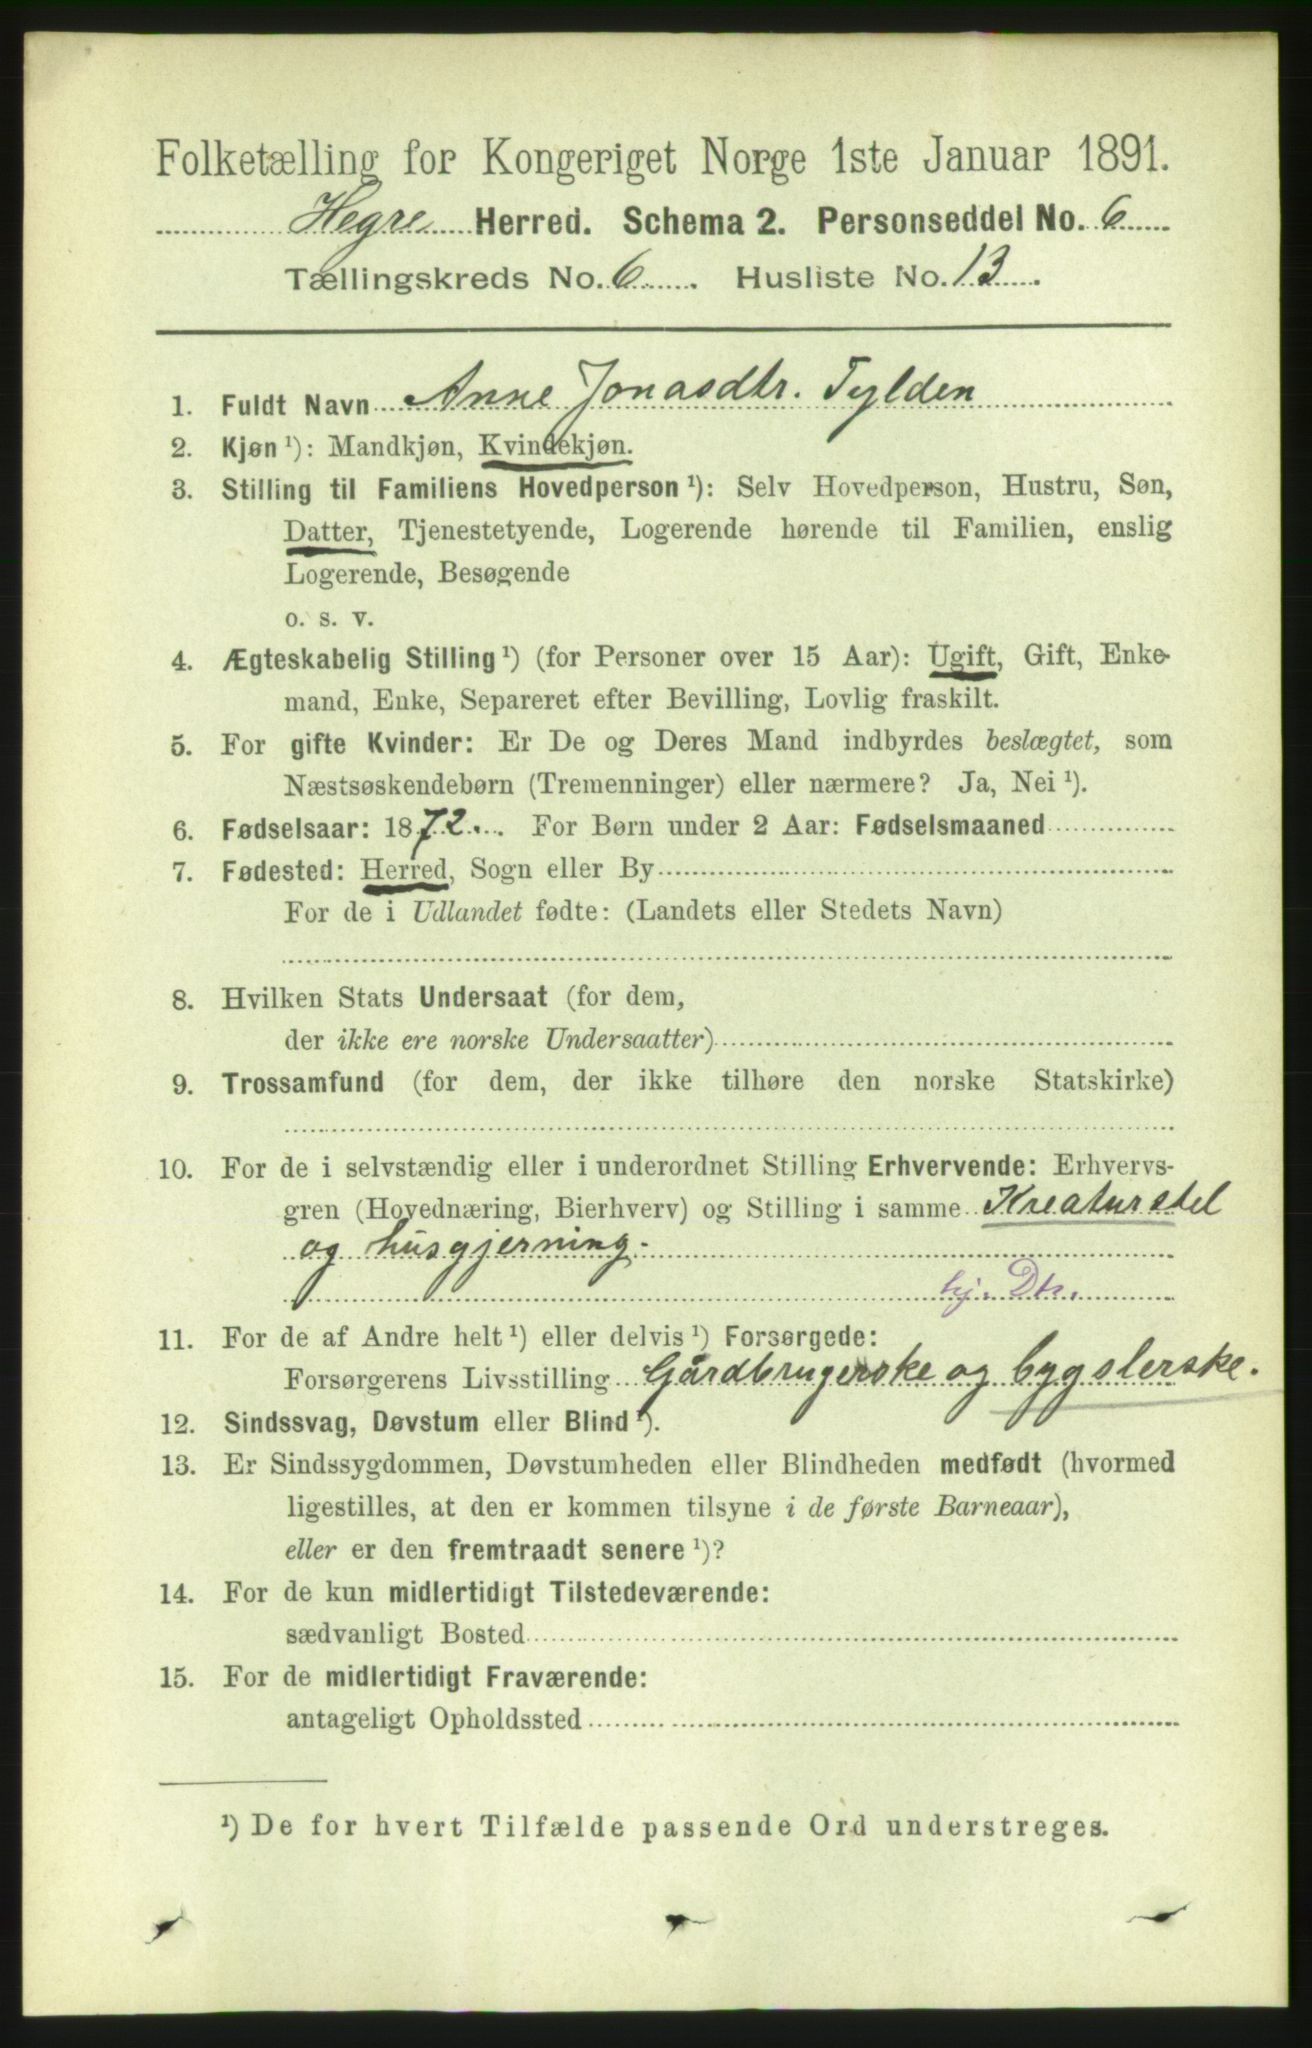 Folketælling for Kongeriget Norge 1ste Januar 1891.
Hegre Herred. Schema 2. Personseddel No. 6
Tællingskreds No. 6. Husliste No. 13.
1. Fuldt Navn Anne Jonasdtr. Tylden
2. Kjøn ¹): Mandkjøn, Kvindekjøn.
3. Stilling til Familiens Hovedperson ¹): Selv Hovedperson, Hustru, Søn,
Datter, Tjenestetyende, Logerende hørende til Familien, enslig
Logerende, Besøgende
o. s. v.
4. Ægteskabelig Stilling ¹) (for Personer over 15 Aar): Ugift, Gift, Enke-
mand, Enke, Separeret efter Bevilling, Lovlig fraskilt.
5. For gifte Kvinder: Er De og Deres Mand indbyrdes beslægtet, som
Næstsøskendebørn (Tremenninger) eller nærmere? Ja, Nei ¹).
6. Fødselsaar: 1872. For Børn under 2 Aar: Fødselsmaaned
7. Fødested: Herred, Sogn eller By
For de i Udlandet fødte: (Landets eller Stedets Navn)
8. Hvilken Stats Undersaat (for dem,
der ikke ere norske Undersaatter)
9. Trossamfund (for dem, der ikke tilhøre den norske Statskirke)
10. For de i selvstændig eller i underordnet Stilling Erhvervende: Erhvervs-
gren (Hovednæring, Bierhverv) og Stilling i samme Kreaturstel
og husgjerning.
hj. Dtr.
11. For de af Andre helt ¹) eller delvis ¹) Forsørgede:
Forsørgerens Livsstilling Gårdbrugerske og bygslerske.
12. Sindssvag, Døvstum eller Blind ¹).
13. Er Sindssygdommen, Døvstumheden eller Blindheden medfødt (hvormed
ligestilles, at den er kommen tilsyne i de første Barneaar),
eller er den fremtraadt senere ¹)?
14. For de kun midlertidigt Tilstedeværende:
sædvanligt Bosted
15. For de midlertidigt Fraværende:
antageligt Opholdssted
¹) De for hvert Tilfælde passende Ord understreges.